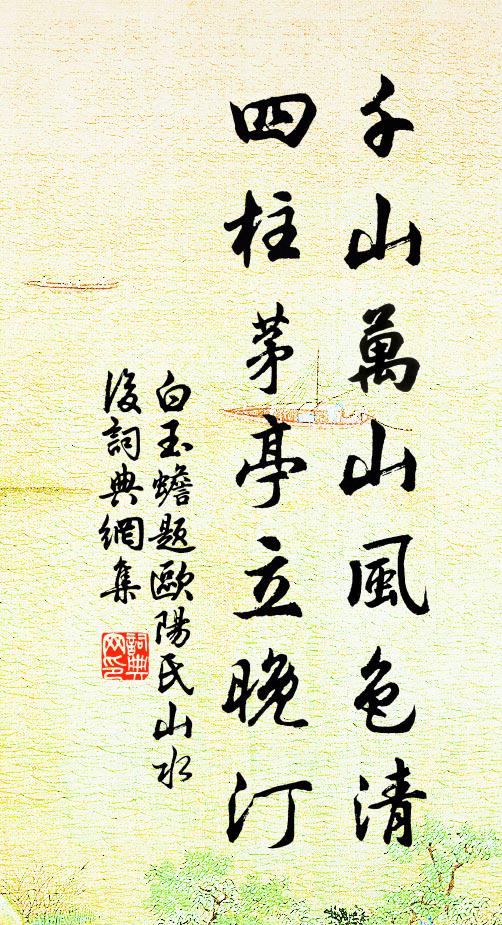 千山萬山風色清
四柱茅亭立晚汀
白玉蟾題歐陽氏山水
後詞典網集
詞典网印